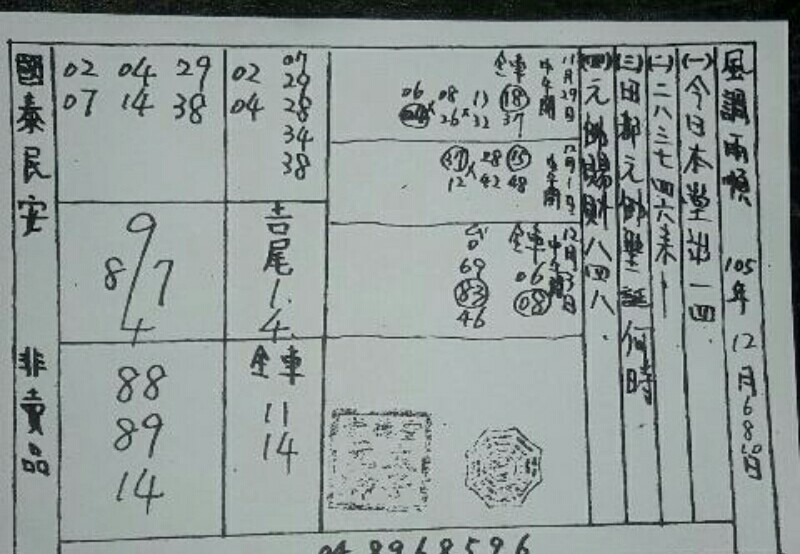 風調雨順 105年 12月6 8 10日
(一)今日本堂出一四
(二)二八三七四六來
(三)田都元帥聖誕何時
(四)元帥賜財八四八
11月29日
中午開
全車
06 08 13 18
26 32 37
12月1日
中午開
28 15
12 42 48
12月3日
中午開
全車
06
08
台
69
83
46
02 07
04 29
28
34
38
吉尾1.4.
全車
11
14
02 04 29
07 14 38
9
8/7
4
88
89
14
國泰民安 非賣品
04 8968596